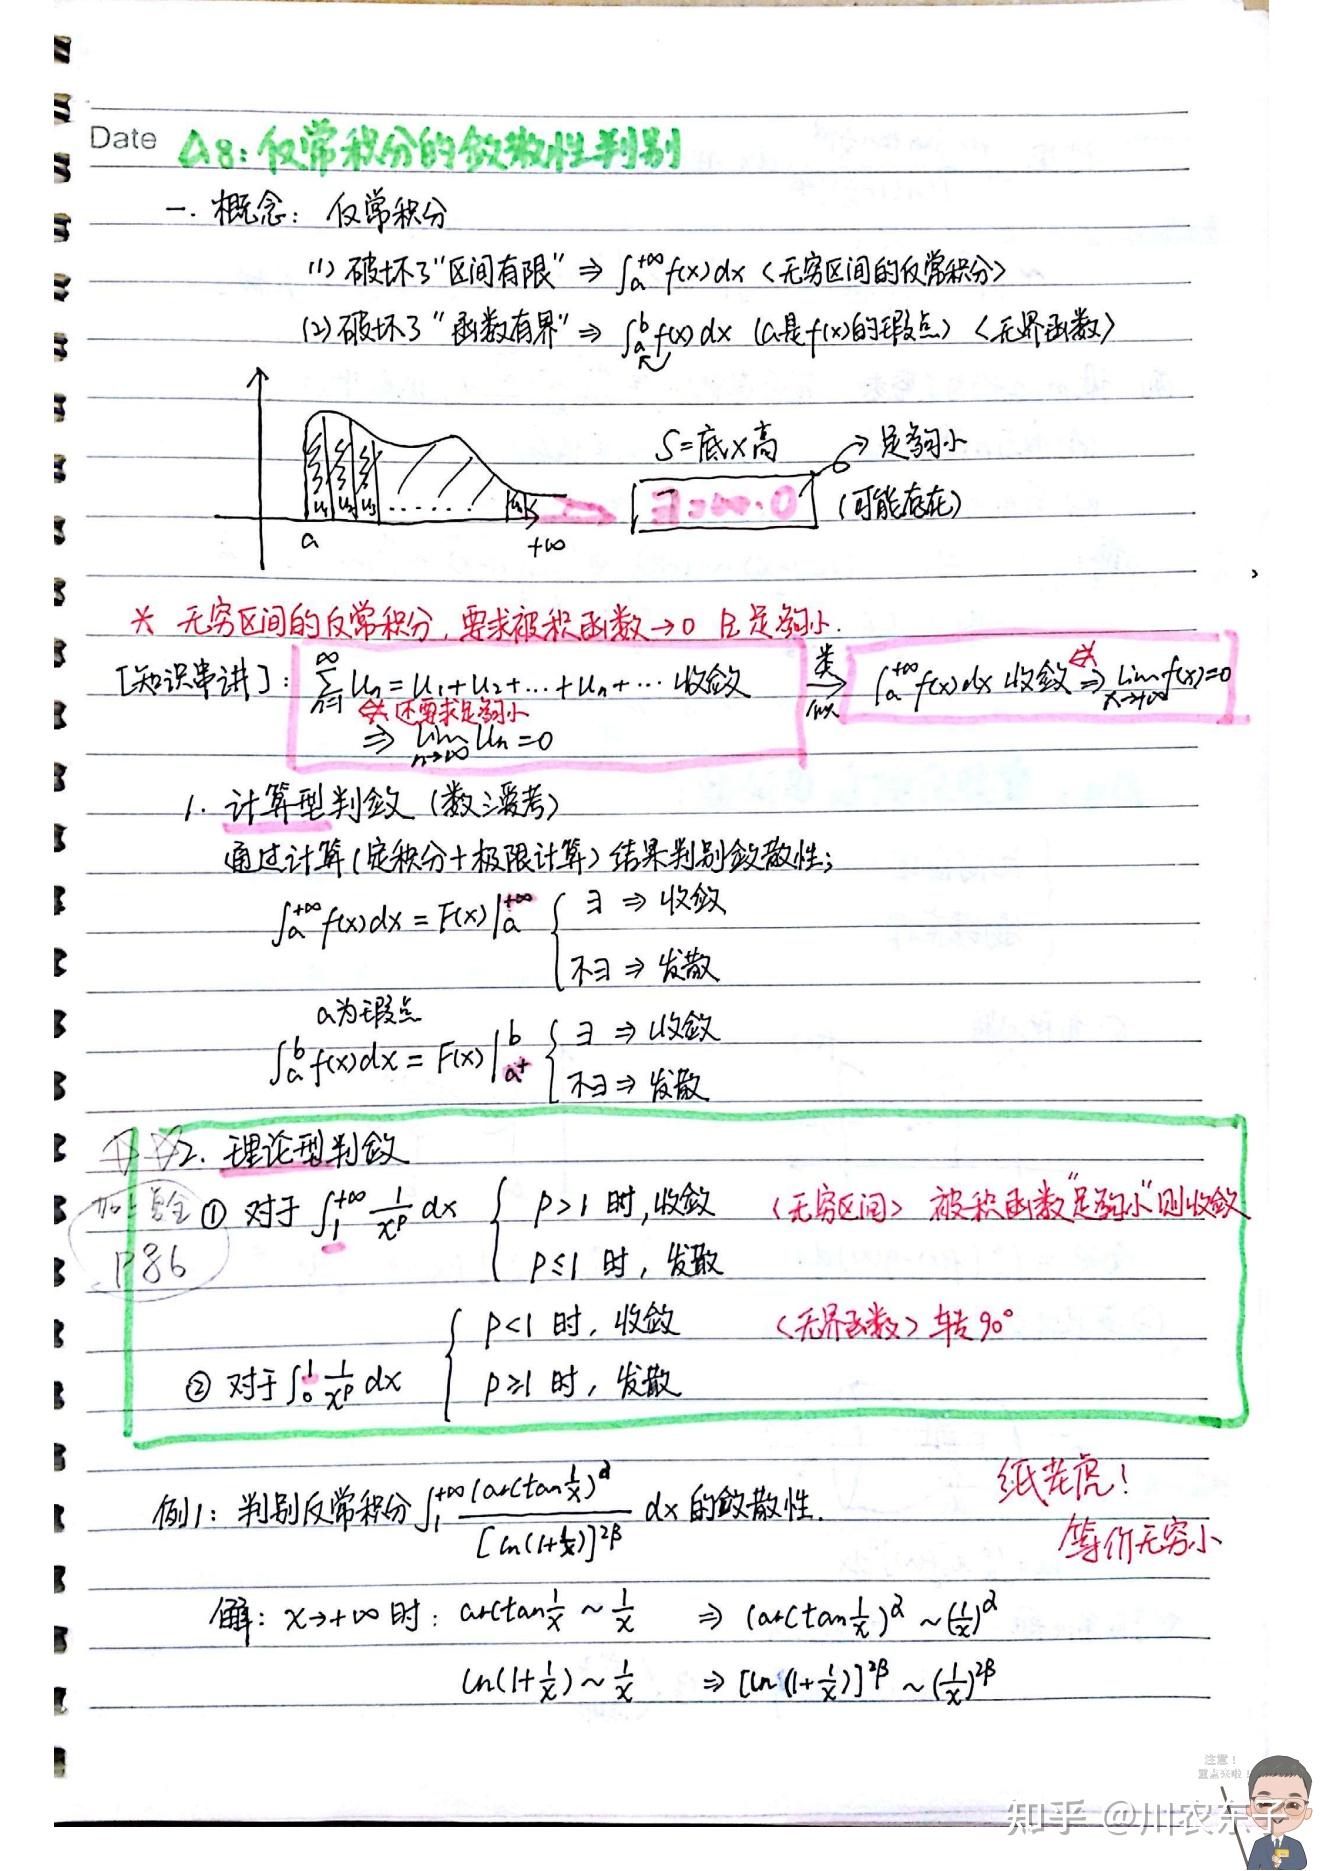 Date △8: 反常积分的敛散性判别
一. 概念: 反常积分
(1) 破坏了“区间有限” ⇒ ∫ₐ^{+∞} f(x)dx 〈无穷区间的反常积分〉
(2) 破坏了“函数有界” ⇒ ∫ₐ^b f(x)dx (a是f(x)的瑕点) 〈无界函数〉
S=底×高
足够小
∃=∞·0
(可能存在)
u₁ u₂ u₃ ...... uₙ
a +∞
无穷区间的反常积分, 要求被积函数→0 且足够小.
[知识串讲]: ∑_{n=1}^{∞} uₙ = u₁+u₂+…+uₙ+… 收敛 类似 ∫ₐ^{+∞} f(x)dx 收敛 ⇒ lim_{x→+∞} f(x)=0
还要求足够小
⇒ lim_{n→∞} uₙ=0
1. 计算型判敛 (数三爱考)
通过计算(定积分+极限计算)结果判别敛散性;
∫ₐ^{+∞} f(x)dx = F(x)|ₐ^{+∞} { ∃ ⇒ 收敛
不∃ ⇒ 发散
a为瑕点
∫ₐ^b f(x)dx = F(x)|_{a⁺}^b { ∃ ⇒ 收敛
不∃ ⇒ 发散
☆☆2. 理论型判敛
P86
① 对于 ∫₁^{+∞} 1/x^p dx { p>1 时, 收敛 〈无穷区间〉 被积函数“足够小”则收敛
p≤1 时, 发散
p<1 时, 收敛 〈无界函数〉 转90°
② 对于∫₀¹ 1/x^p dx { p≥1 时, 发散
例1: 判别反常积分 ∫₁^{+∞} (arctan 1/x)^α / [ln(1+1/x)]^{2β} dx 的敛散性.
纸老虎!
等价无穷小
解: x→+∞ 时: arctan 1/x ~ 1/x ⇒ (arctan 1/x)^α ~ (1/x)^α
ln(1+1/x) ~ 1/x ⇒ [ln(1+1/x)]^{2β} ~ (1/x)^{2β}
注意!
重点来啦!
知乎 @川农东子